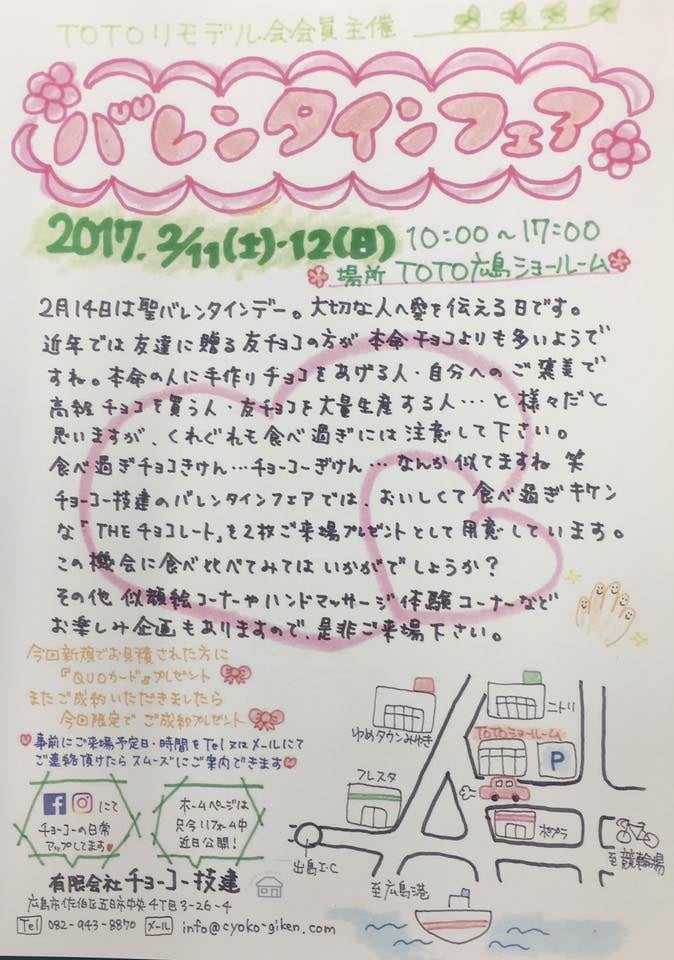 TOTOリモデル会会員主催
バレンタインフェア
2017. 2/11(土)・12(日) 10:00～17:00
場所 TOTO広島ショールーム
2月14日は聖バレンタインデー。大切な人へ愛を伝える日です。
近年では友達に贈る友チョコの方が本命チョコよりも多いようで
すね。本命の人に手作りチョコをあげる人・自分へのご褒美で
高級チョコを買う人・友チョコを大量生産する人…と様々だと
思いますが、くれぐれも食べ過ぎには注意して下さい。
食べ過ぎチョコきけん…チョーコーぎけん…なんか似てますね 笑
チョーコー技建のバレンタインフェアでは、おいしくて食べ過ぎキケン
な「THEチョコレート」を2枚ご来場プレゼントとして用意しています。
この機会に食べ比べてみてはいかがでしょうか?
その他 似顔絵コーナーやハンドマッサージ体験コーナーなど
お楽しみ企画もありますので、是非ご来場下さい。
今回新規でお見積された方に
『QUOカード』プレゼント
またご成約いただきましたら
今回限定でご成約プレゼント
事前にご来場予定日・時間をTel又はメールにて
ご連絡頂けたらスムーズにご案内できます
f にて
チョーコーの日常
アップしてます
ホームページは
只今リフォーム中
近日公開!
有限会社チョーコー技建
広島市佐伯区五日市中央4丁目3-26-4
Tel 082-943-8870 メール info@cyoko-giken.com
ゆめタウンみゆき
ニトリ
TOTOショールーム
P
フレスタ
ポプラ
出島I・C
至広島港
至競輪場